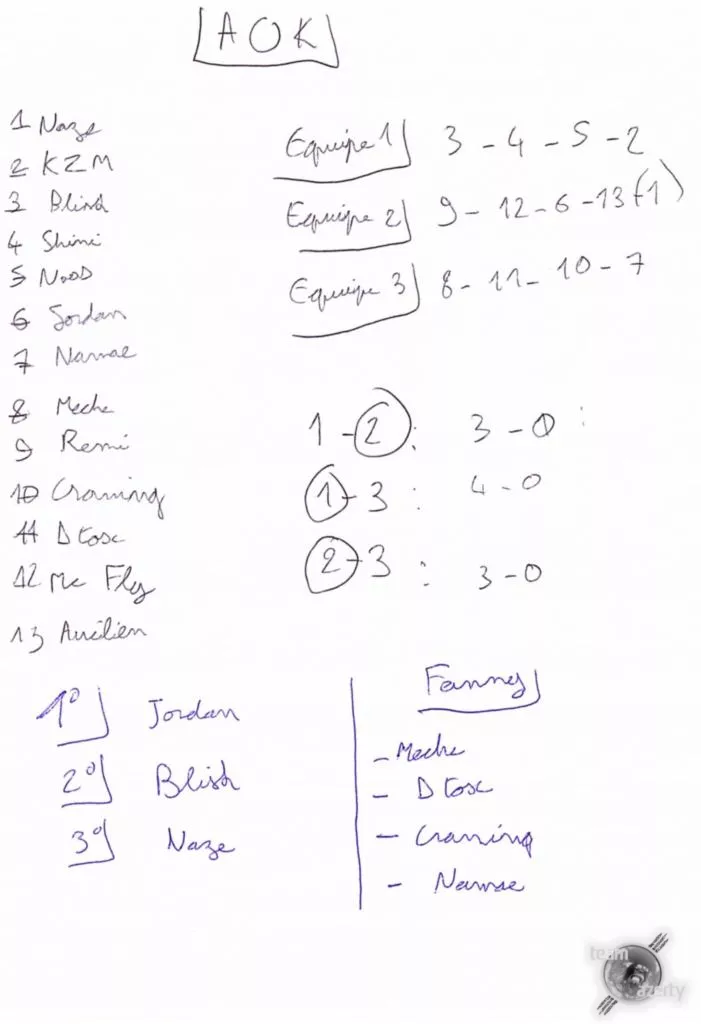 AOK
1 Naze
2 KZM
3 Blish
4 Shimi
5 NooB
6 Jordan
7 Namae
8 Meche
9 Remi
10 Craming
11 D Tosc
12 Mc Fly
13 Aurélien
Equipe 1 3 - 4 - 5 - 2
Equipe 2 9 - 12 - 6 - 13 (1)
Equipe 3 8 - 11 - 10 - 7
1 - 2 : 3 - 0 :
1 - 3 : 4 - 0
2 - 3 : 3 - 0
1° Jordan
2° Blish
3° Naze
Fanny
- Meche
- D Tosc
- Craming
- Namae
team
azerty